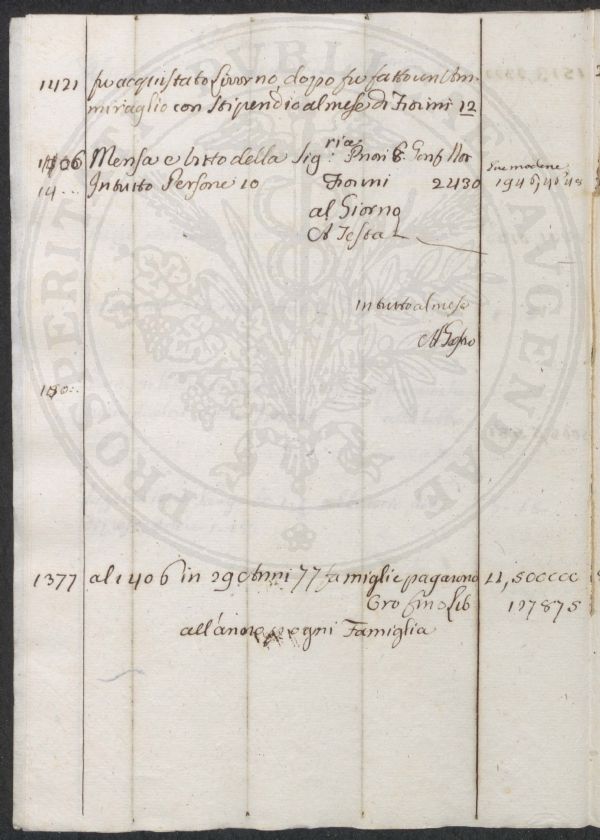 1421 fu acquistato Livorno, dopo fu fatto un Am
miraglio con Stipendio al mese di Fiorini 12
1406 Mensa e vitto della Sig:ria Priori 8. Gonf Not
14... In tutto Persone 10 Fiorini 2430
al Giorno
A Testa
in tutto al mese
180..
1377 al 1406 in 29 Anni 77 famiglie pagarono 11,500000
Oro fino Lib 117875
all'anno ogni Famiglia
PROSPERITATI PUBLICAE AUGENDAE